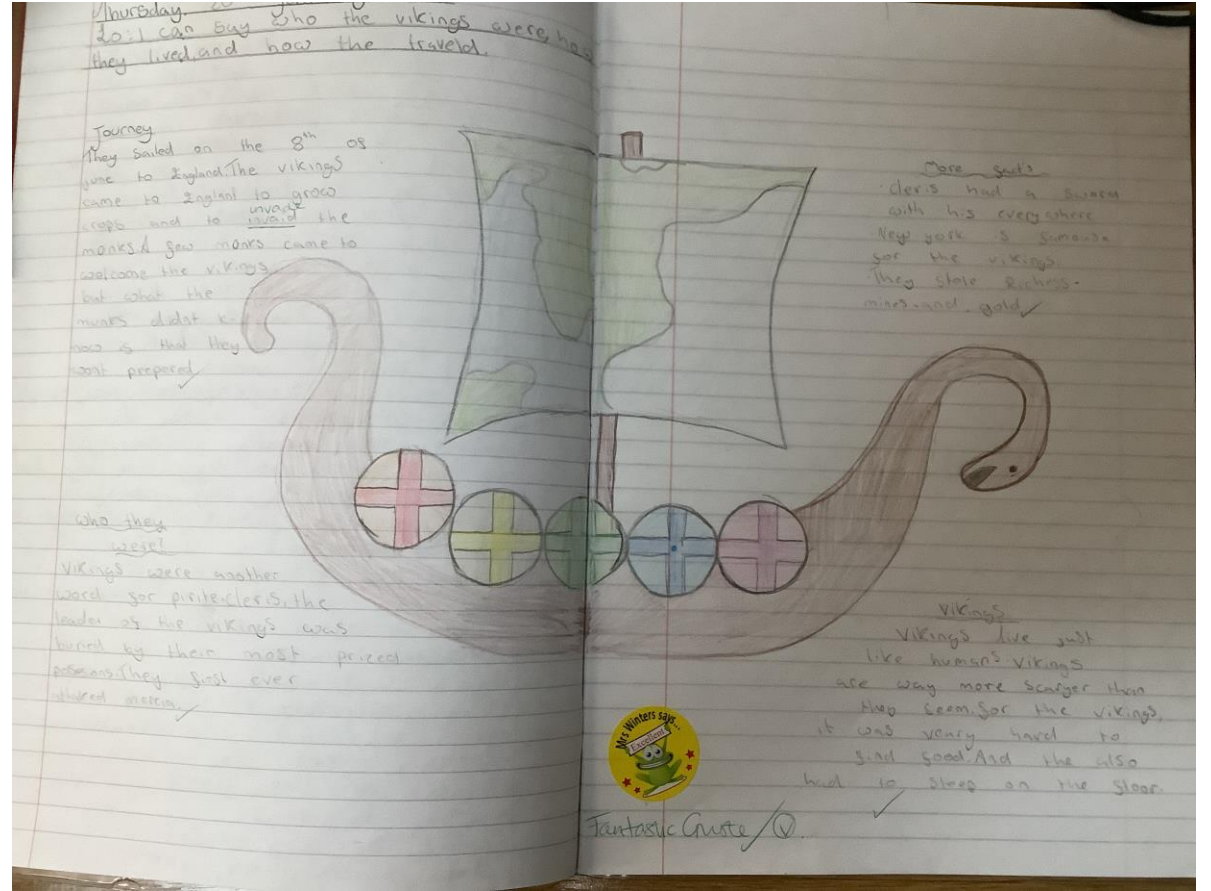 Thursday. 
Lo: I can say who the vikings were, how
they lived, and how the traveld.
Journey
They sailed on the 8th of
june to England. The vikings
came to Englant to grow
crops and to invade invaid the
monks. A few monks came to
welcome the vikings
but what the
munks didnt k-
now is that they
wont prepared
who they
were?
vikings were another
word for pirite. cleris, the
leader of the vikings was
buried by their most prized
posesions. They first ever
attaked mercia.
More fact's
cleris had a sword
with his everywhere
New york is
for the vikings.
They stole Richess-
mines-and gold
vikings
vikings live just
like humans. vikings
are way more scarger than
they seem. for the vikings,
it was veary hard to
find food. And the also
had to sleep on the floor.
Mrs Winters says...
Excellent
Fantastic